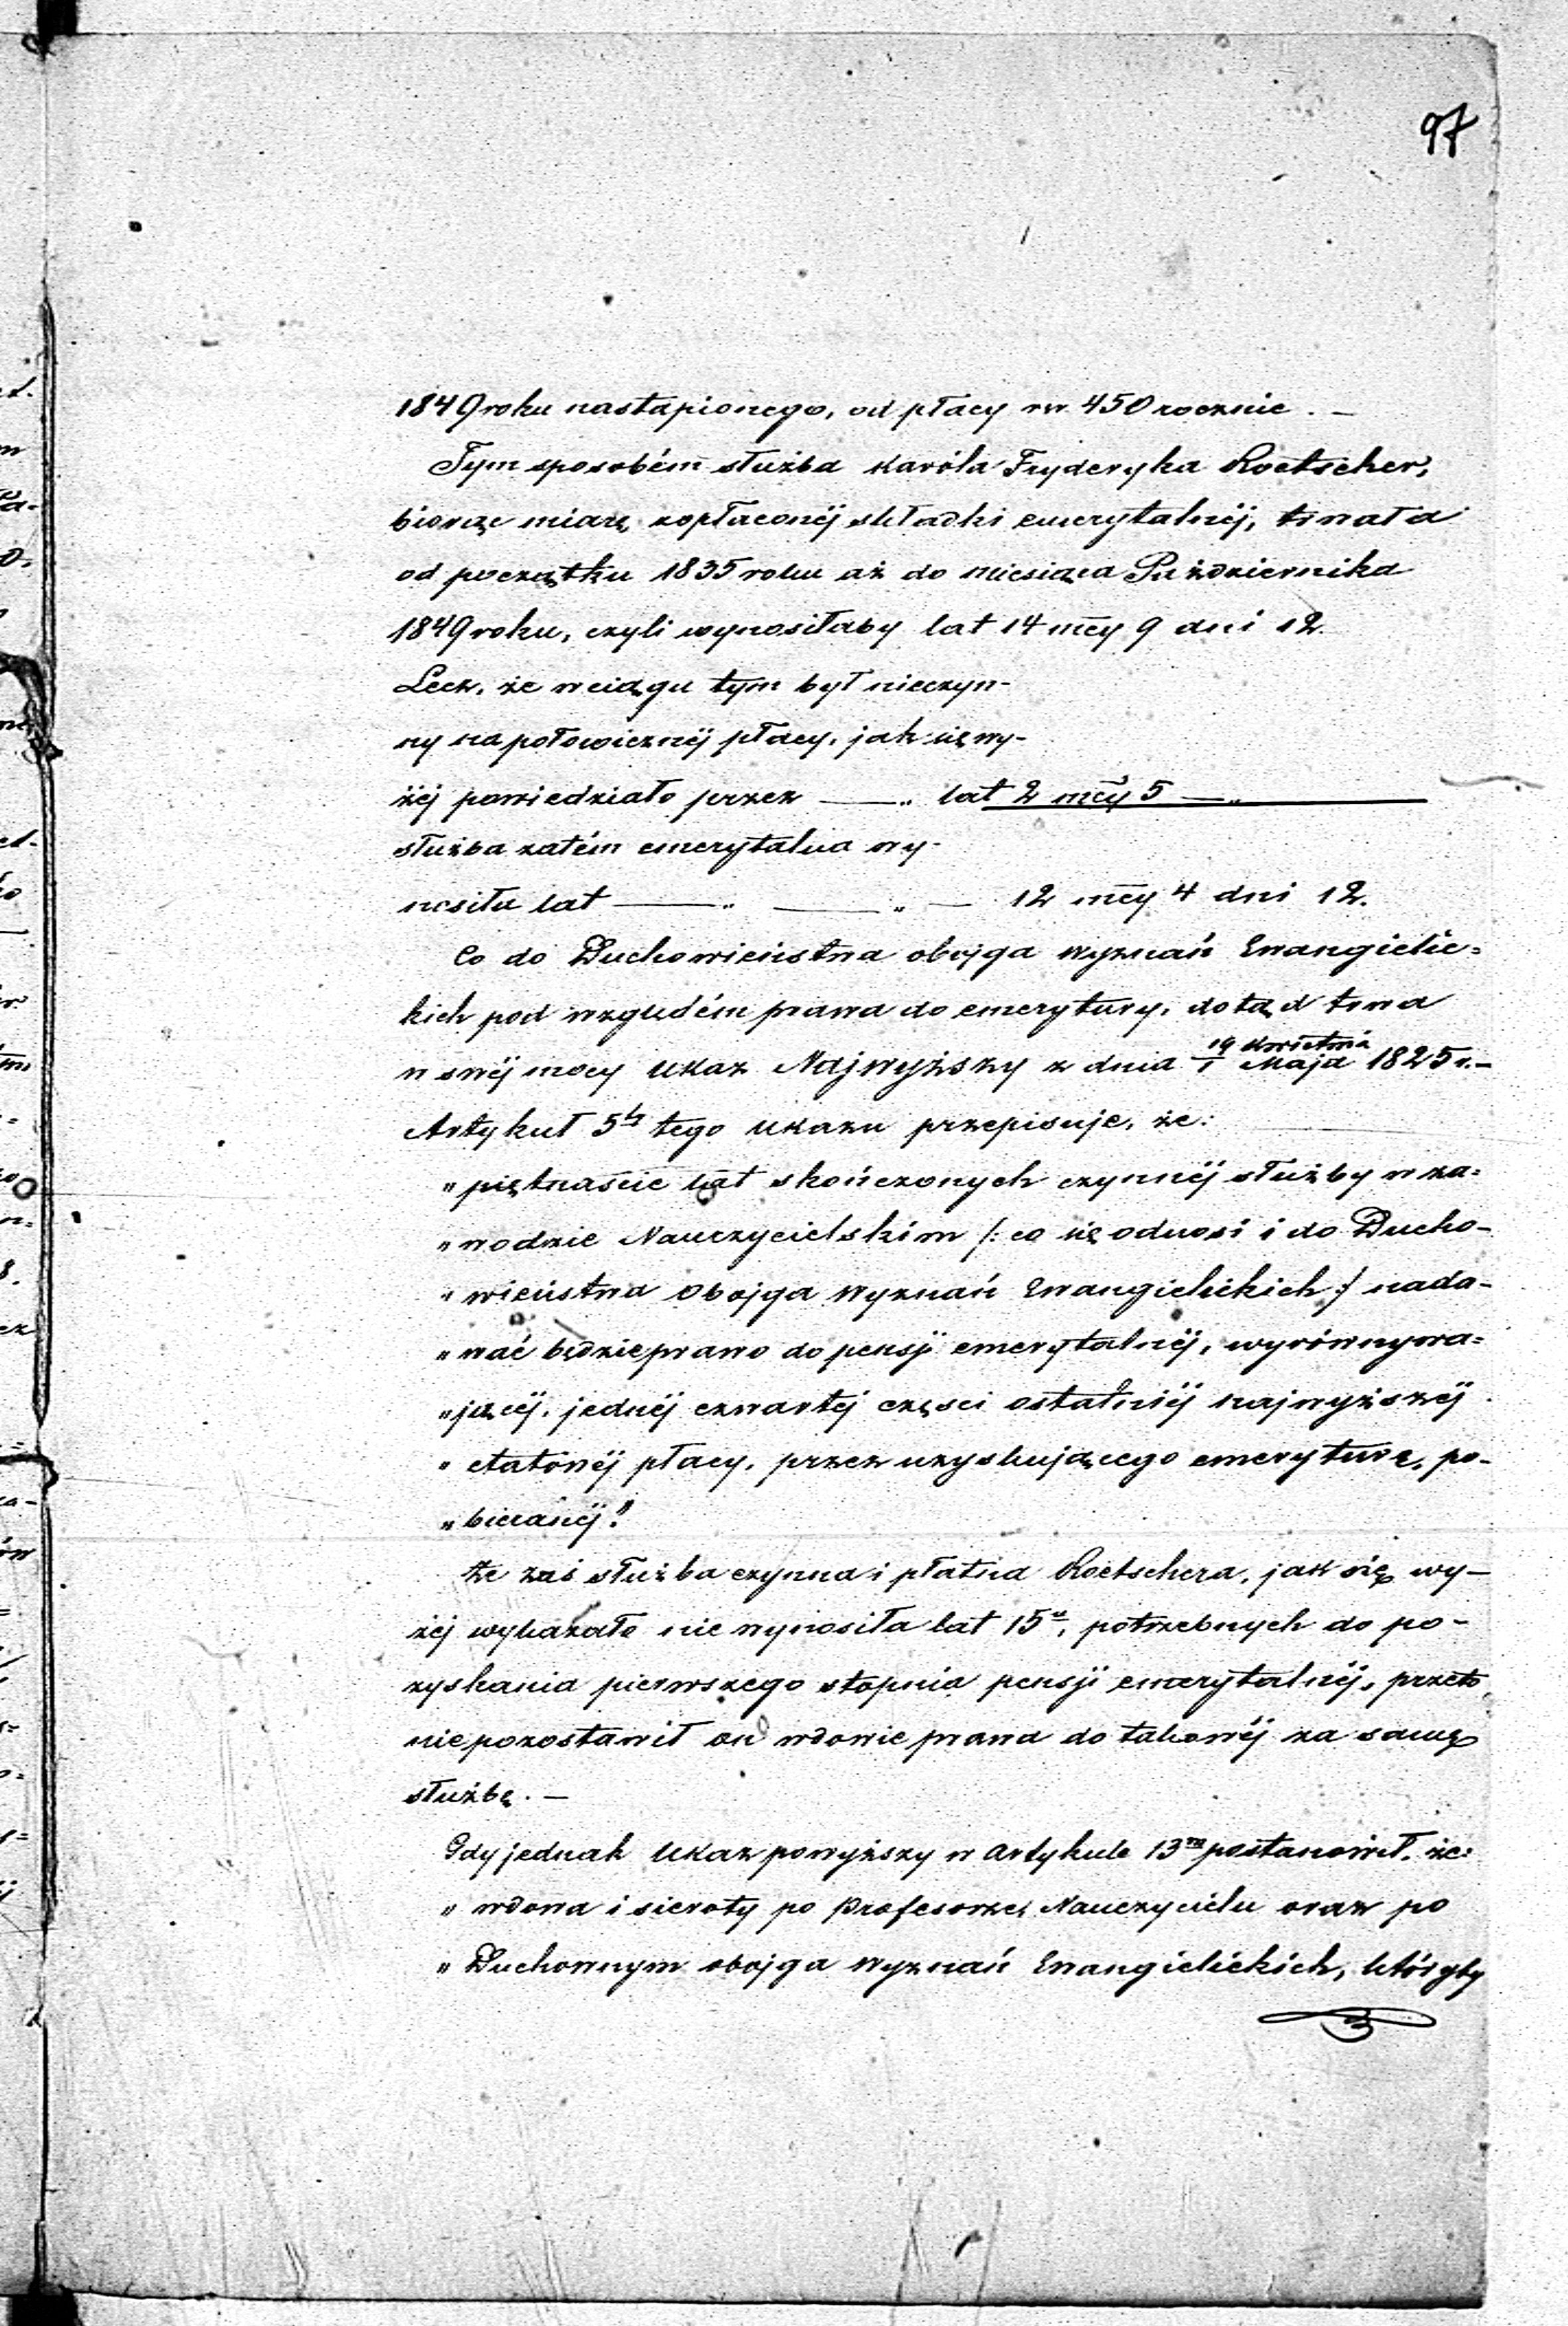 97
1849 roku nastąpionego, od płacy rsr. 450 rocznie. —
Tym sposobém służba Karóla Fryderyka Roetscher,
biorąc miarę zopłaconéj składki emerytalnéj, trwała
od początku 1835 roku aż do miesiąca Października
1849 roku, czyli wynosiłaby lat 14 mcy 9 dni 12.
Lecz, że w ciągu tym był nieczyn-
ny na połowicznéj płacy, jak się wy-
żéj powiedziało przez — „ lat 2 mcy 5 — „
służba zatém emerytalna wy-
nosiła lat — „ — „ — 12 mcy 4 dni 12.
Co do Duchowieństwa obojga wyznań Ewangielic=
kich pod względém prawa do emerytury, dotąd trwa
w swéj mocy Ukaz Najwyższy z dnia 19 Kwietnia / 1 Maja 1825 r. —
Artykuł 5ty tego Ukazu przepisuje, że:
„ piętnaście lat skończonych czynnéj służby w za=
„ wodzie Nauczycielskim /: co się odnosi i do Ducho-
„ wieństwa Obojga Wyznań Ewangielickich :/ nada-
„ wać będzie prawo do pensji emerytalnéj, wyrównywa=
„ jącéj, jednéj czwartéj części ostatniéj najwyższéj
„ etatowéj płacy, przez uzyskującego emeryturę, po-
„ bieranéj."
Że zaś służba czynna i płatna Roetschera, jak się wy-
żéj wykazało nie wynosiła lat 15u, potrzebnych do po-
zyskania pierwszego stopnia pensji emerytalnéj, przeto
nie pozostawił on wdowie prawa do takowéj za samę
służbę. —
Gdy jednak Ukaz powyższy w Artykule 13m postanowił, że:
„ wdowa i sieroty po Profesorze, Nauczycielu oraz po
„ Duchownym obojga Wyznań Ewangielickich, któryby